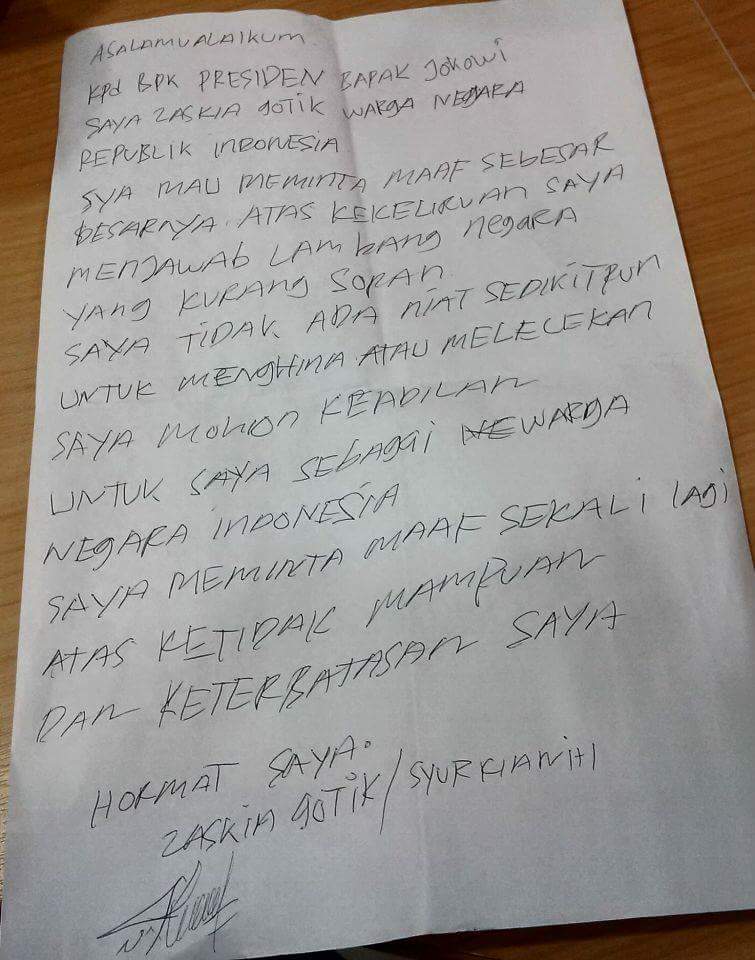 ASALAMUALAIKUM
KPd BPK PRESIDEN BAPAK JOKOWI
SAYA ZASKIA GOTIK WARGA NEGARA
REPUBLIK INDONESIA
SYA MAU MEMINTA MAAF SEBESAR
BESARNYA. ATAS KEKELIRUAN SAYA
MENJAWAB LAMBANG NEGARA
YANG KURANG SOPAN.
SAYA TIDAK ADA NIAT SEDIKITPUN
UNTUK MENGHINA ATAU MELECEKAN
SAYA MOHON KEADILAN
UNTUK SAYA SEBAGAI NEWARGA
NEGARA INDONESIA
SAYA MEMINTA MAAF SEKALI LAGI
ATAS KETIDAK MAMPUAN
DAN KETERBATASAN SAYA
HORMAT SAYA.
ZASKIA GOTIK/SYURKIANIHI